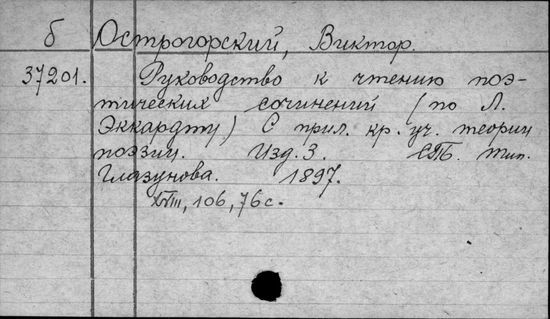 б Острогорский, Виктор.
37201. Руководство к чтению поэ-
тических сочинений (по Л.
Эккардту) С прил. кр. уч. теории
поэзии. Изд. 3. СПб. тип.
Глазунова. 1897.
XVIII, 106, 76 с.